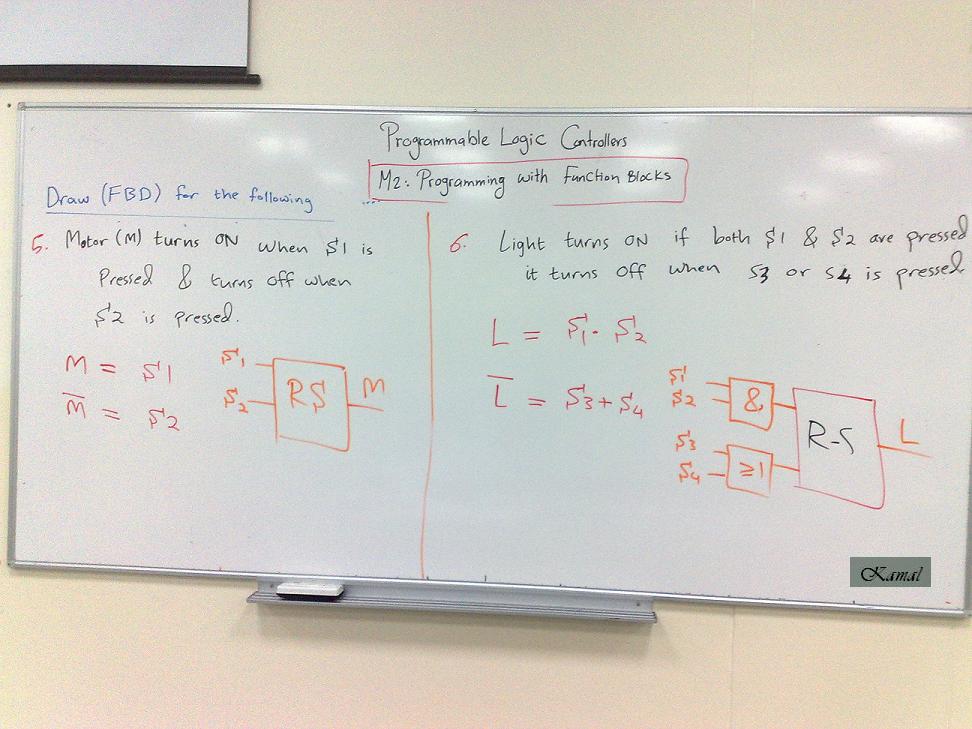 Programmable Logic Controllers
M2: Programming with Function Blocks
Draw (FBD) for the following ....
5. Motor (M) turns ON when S1 is
Pressed & turns off when
S2 is pressed.
M = S1
M̅ = S2
S1
S2
RS
M
6. Light turns ON if both S1 & S2 are pressed
it turns off when S3 or S4 is pressed
L = S1 . S2
L̅ = S3 + S4
S1
S2
&
S3
S4
≥1
R-S
L
Kamal